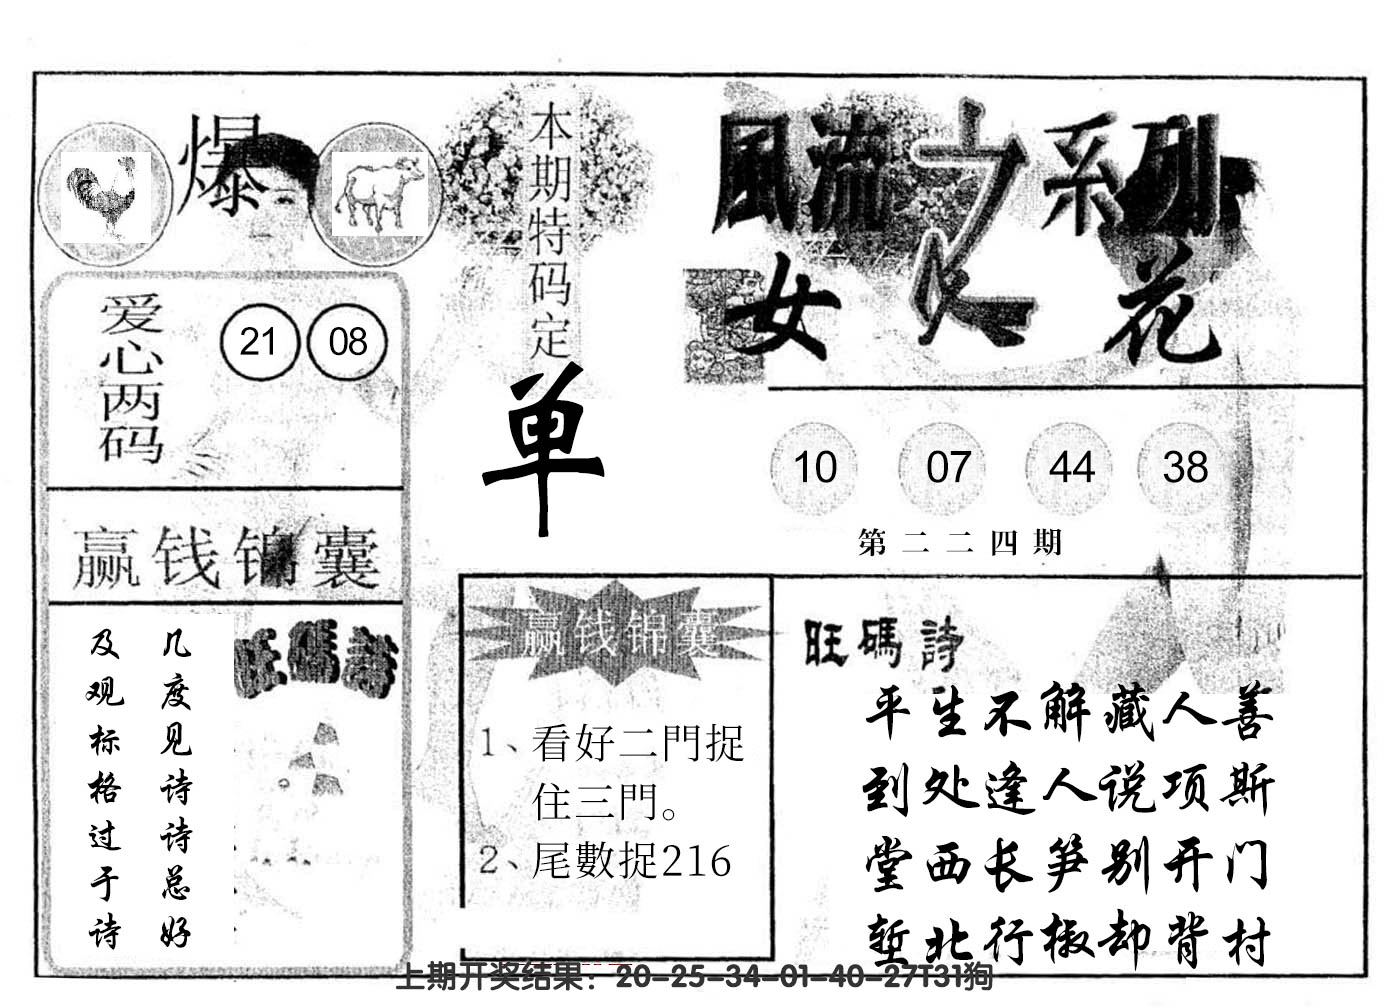 爆
本期特码定
单
風流女人花
之
系列
爱心两码
21 08
10 07 44 38
第二二四期
赢钱锦囊
几度见诗诗总好
及观标格过于诗
旺碼詩
赢钱锦囊
1、看好二門捉
住三門。
2、尾數捉216
旺碼詩
平生不解藏人善
到处逢人说项斯
堂西长笋别开门
堑北行椒却背村
上期开奖结果：20-25-34-01-40-27T31狗